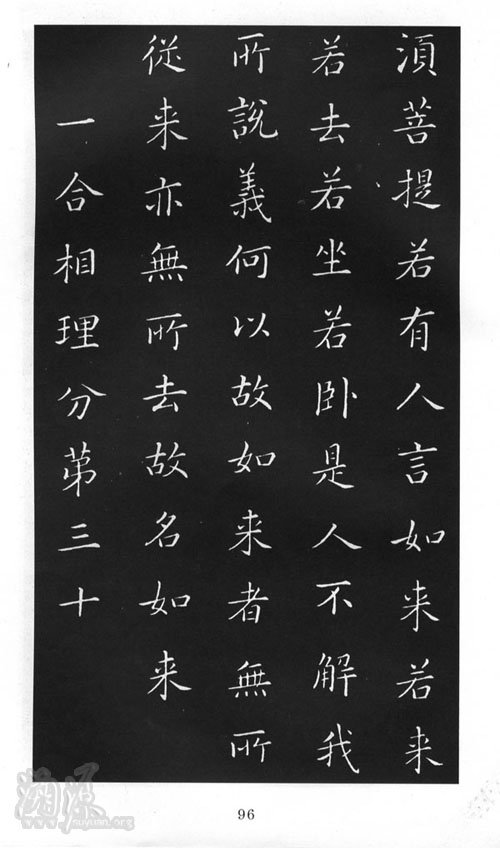 湏菩提若有人言如来若来
若去若坐若卧是人不解我
所說義何以故如来者無所
從来亦無所去故名如来
一合相理分苐三十
96
suyuan.org